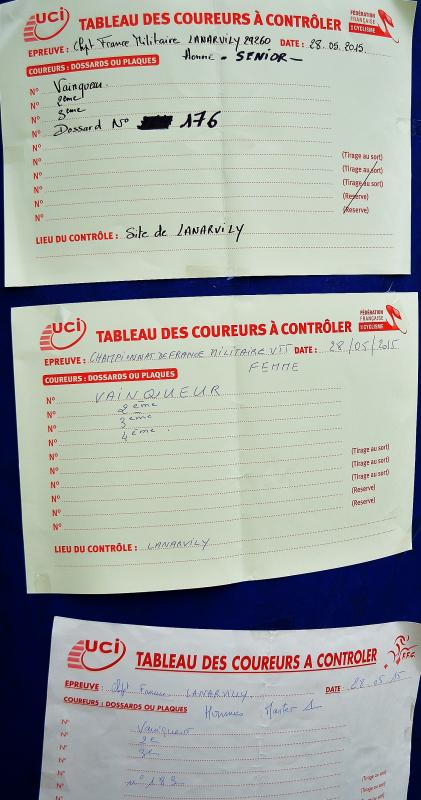 UCI TABLEAU DES COUREURS À CONTRÔLER FÉDÉRATION FRANÇAISE DE CYCLISME
EPREUVE : Chpt France Militaire LANARVILY 29260 DATE : 28.05.2015.
Homme - SENIOR -
COUREURS : DOSSARDS OU PLAQUES
N° Vainqueur.
N° 2ème
N° 3ème
N° Dossard N° 176
N°
N° (Tirage au sort)
N° (Tirage au sort)
N° (Tirage au sort)
N° (Reserve)
N° (Reserve)
LIEU DU CONTRÔLE : Site de LANARVILY
UCI TABLEAU DES COUREURS À CONTRÔLER FÉDÉRATION FRANÇAISE DE CYCLISME
EPREUVE : CHAMPIONNAT DE FRANCE MILITAIRE VTT DATE : 28/05/2015
COUREURS : DOSSARDS OU PLAQUES FEMME
N° VAINQUEUR
N° 2ème
N° 3ème
N° 4ème.
N°
N° (Tirage au sort)
N° (Tirage au sort)
N° (Tirage au sort)
N° (Reserve)
N° (Reserve)
LIEU DU CONTRÔLE : LANARVILY
UCI TABLEAU DES COUREURS A CONTROLER F.F.C.
EPREUVE : Chpt France LANARVILLY DATE : 28 05 15
COUREURS : DOSSARDS OU PLAQUES Hommes Master 1
N° Vainqueur
N° 2e
N° 3e
N°
N° n° 183
N° (Tirage au
(Tirage